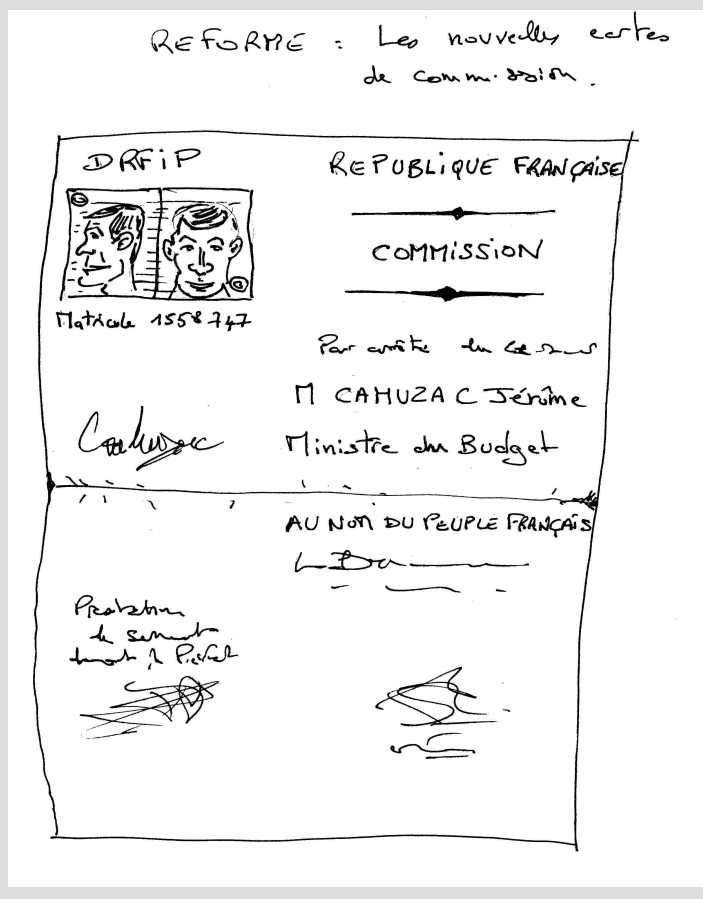 REFORME : Les nouvelles cartes
de commission.
DRFiP
REPUBLIQUE FRANÇAISE
COMMISSION
Matricule 1558747
Par arrêté du
M CAHUZAC Jérôme
Cahuzac
Ministre du Budget
AU NOM DU PEUPLE FRANÇAIS
Prestation
de serment
devant le Préfet